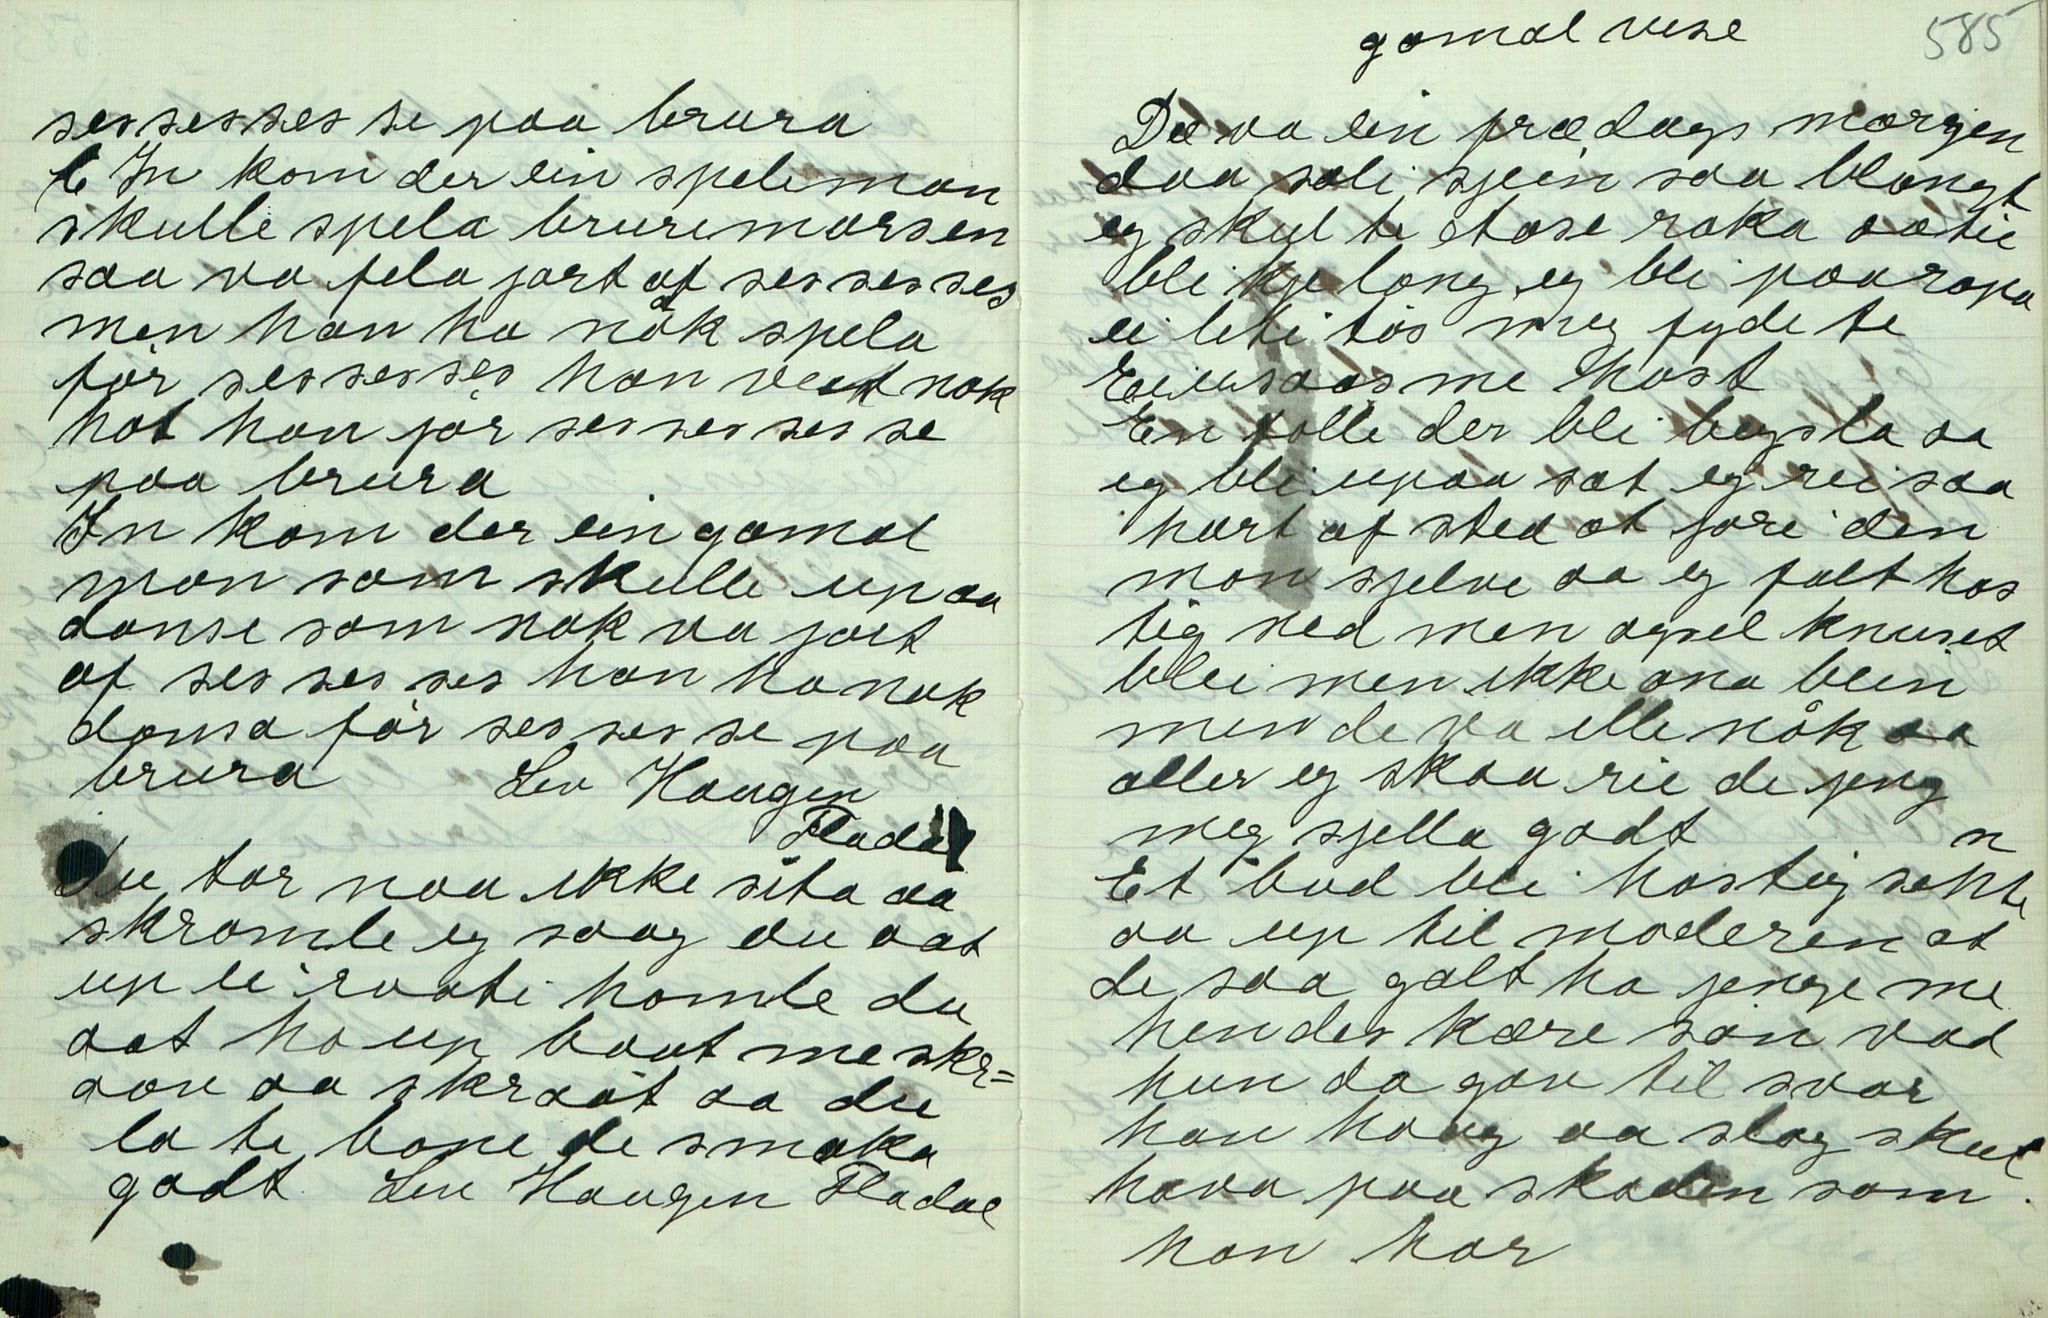 ses ses ses se paa brura
In kom der ein speleman
skulle spela bruremarsen
saa va fela jort af ses ses ses
men han ha nåk spela
før ses ses ses han veit nok
hot han jør ses ses ses se
paa brura
In kom der ein gamal
man som skulle up aa
danse som nok va jort
af ses ses ses han ha nok
dansa før ses ses se paa
brura Lev Haugen
Fladal
du tar naa ikke sita aa
skromle eg saag du aat
up ei raati homle du
aat ho up baat me skr=
aon aa skraat aa du
la te bone de smaka
godt Lev Haugen Fladal
gamal vise
585
De va ein frædags morgen
daa soli sjein saa blangt
eg skul te stose raka aatie
bli kje long eg bli paa ropa
ei liti tøs meg fyde te
me Hast
En folle der bli beysla aa
eg bli upaa sat eg rei saa
hart af sted at jore den
mon sjelve aa eg falt has
tig ned men ogsel knuset
blei men ikke ana bein
men de va ille nåk aa
aller eg skaa rie de jeng
meg sjella godt
Et bud blei hastig sennte
aa up til moderen at
de saa galt ha jenge me
hendes kære søn vad
hun da gav til svar
han haug aa slag skul
hava paa skaden som
han har